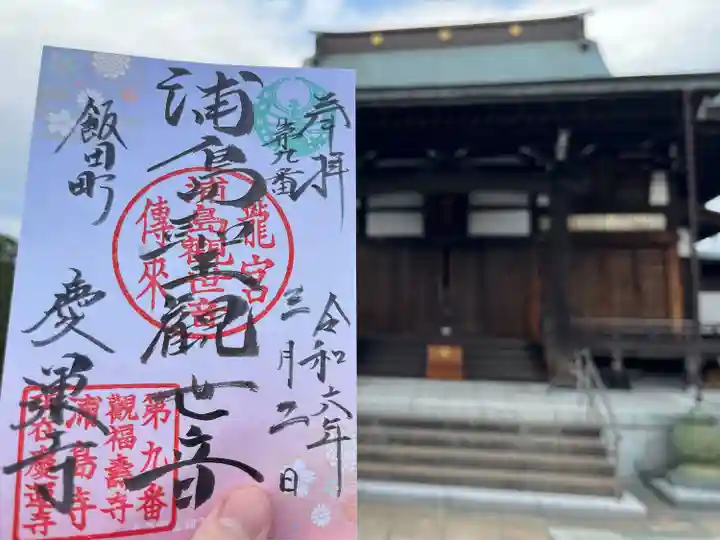 奉拝
第九番
令和六年
三月二日
浦島聖観世音
龍宮
浦島観世音
傳來
飯田町
慶運寺
第九番
觀福壽寺
浦島寺
慶運寺